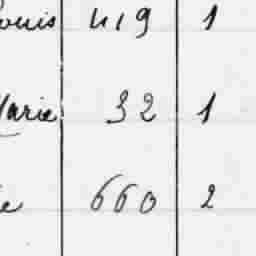 ouis 419 1
Marie 32 1
e 660 2